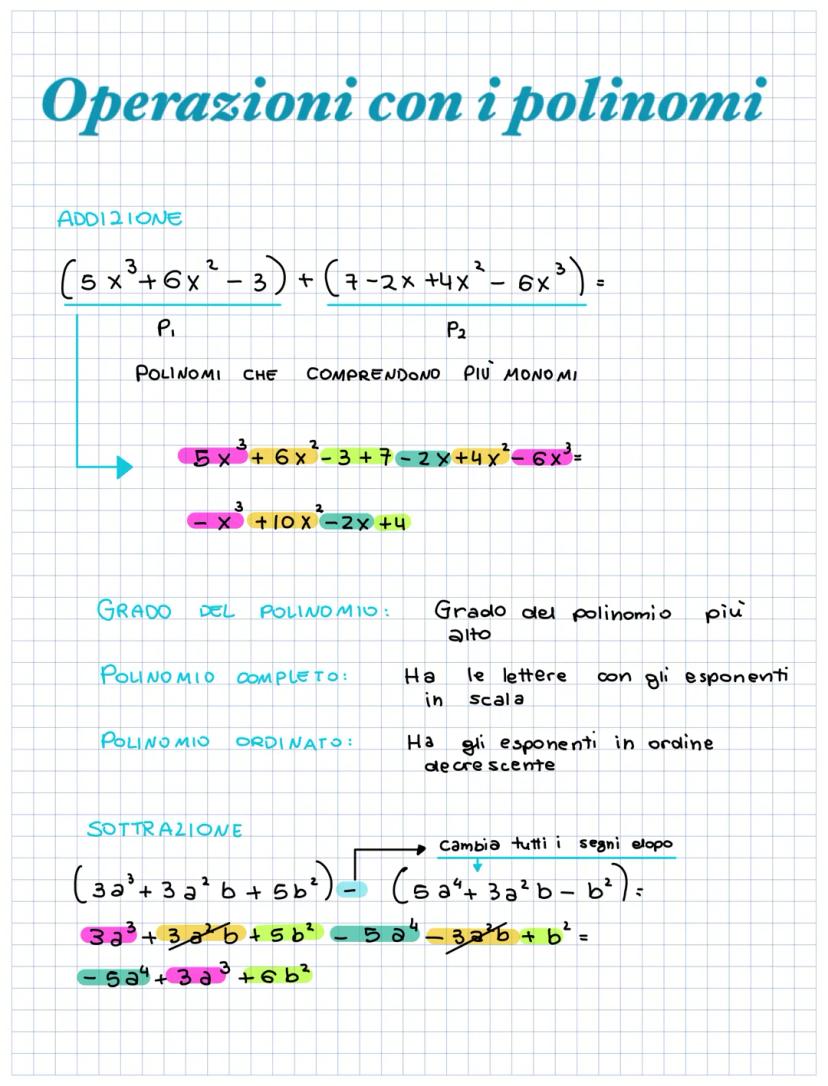 Operazioni con i polinomi
ADDIZIONE
(5x³+6x²-3)+(7-2x+4x²-6x³)=
P₁ P₂
POLINOMI CHE COMPRENDONO PIÙ MONOMI
5x³+6x²-3+7-2x+4x²-6x³=
-x³+10x²-2x+4
GRADO DEL POLINOMIO: Grado del polinomio più
alto
POLINOMIO COMPLETO: Ha le lettere con gli esponenti
in scala
POLINOMIO ORDINATO: Ha gli esponenti in ordine
decrescente
SOTTRAZIONE
Cambia tutti i segni dopo
(3a³+3a²b+5b²)-(5a⁴+3a²b-b²)=
3a³+3a²b+5b²-5a⁴-3a²b+b²=
-5a⁴+3a³+6b²